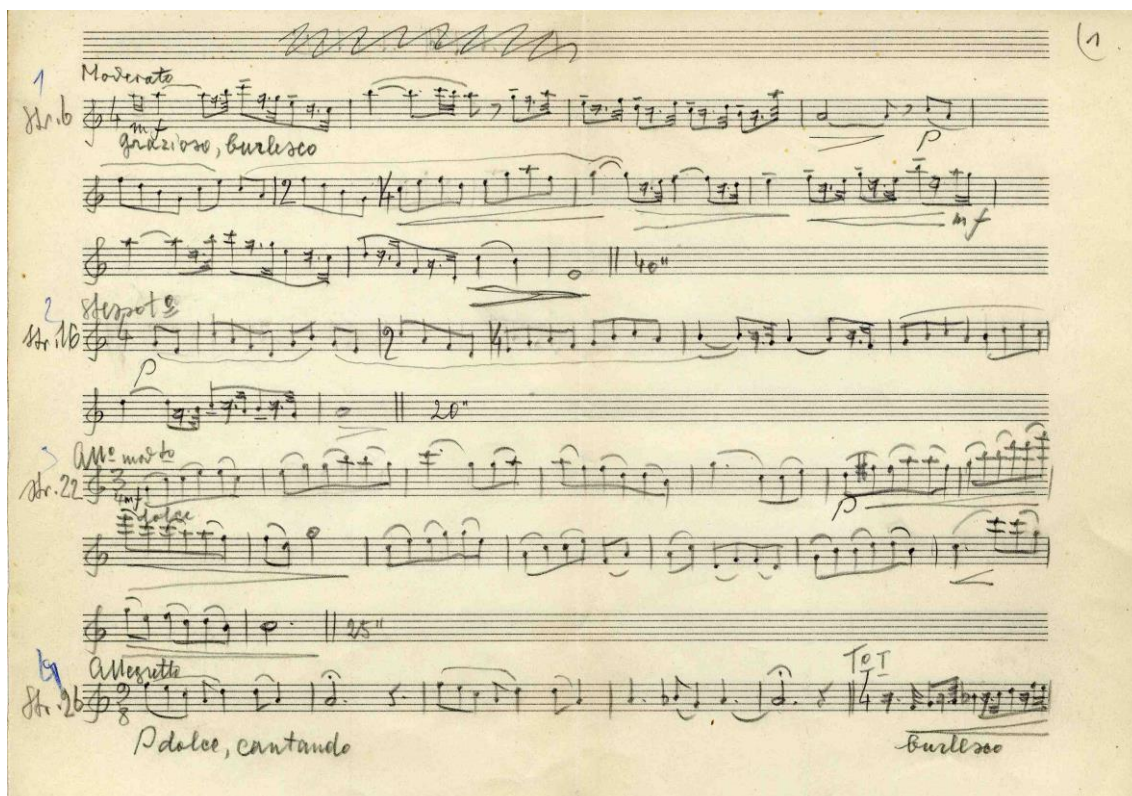 (1
1 Moderato
str. 6 4
mf
grazioso, burlesco
p
2 4
mf
40"
2
str. 16 4 2 4
p
20"
3 All° mod to
str. 22 3 4 mf
dolce
p
25"
Allegretto
str. 26 3 8
To I
4
p dolce, cantando burlesco